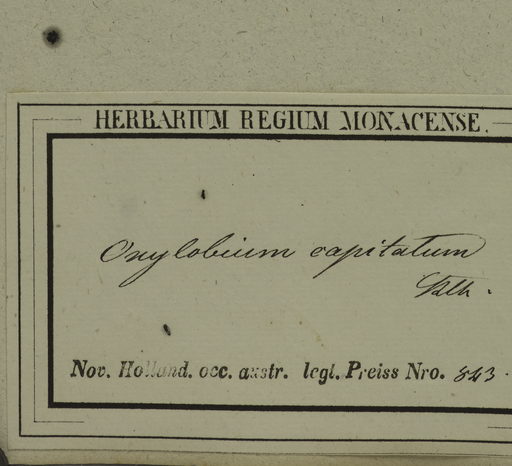 HERBARIUM REGIUM MONACENSE.
Oxylobium capitatum
Bth.
Nov. Holland. occ. austr. legl. Preiss Nro. 843.